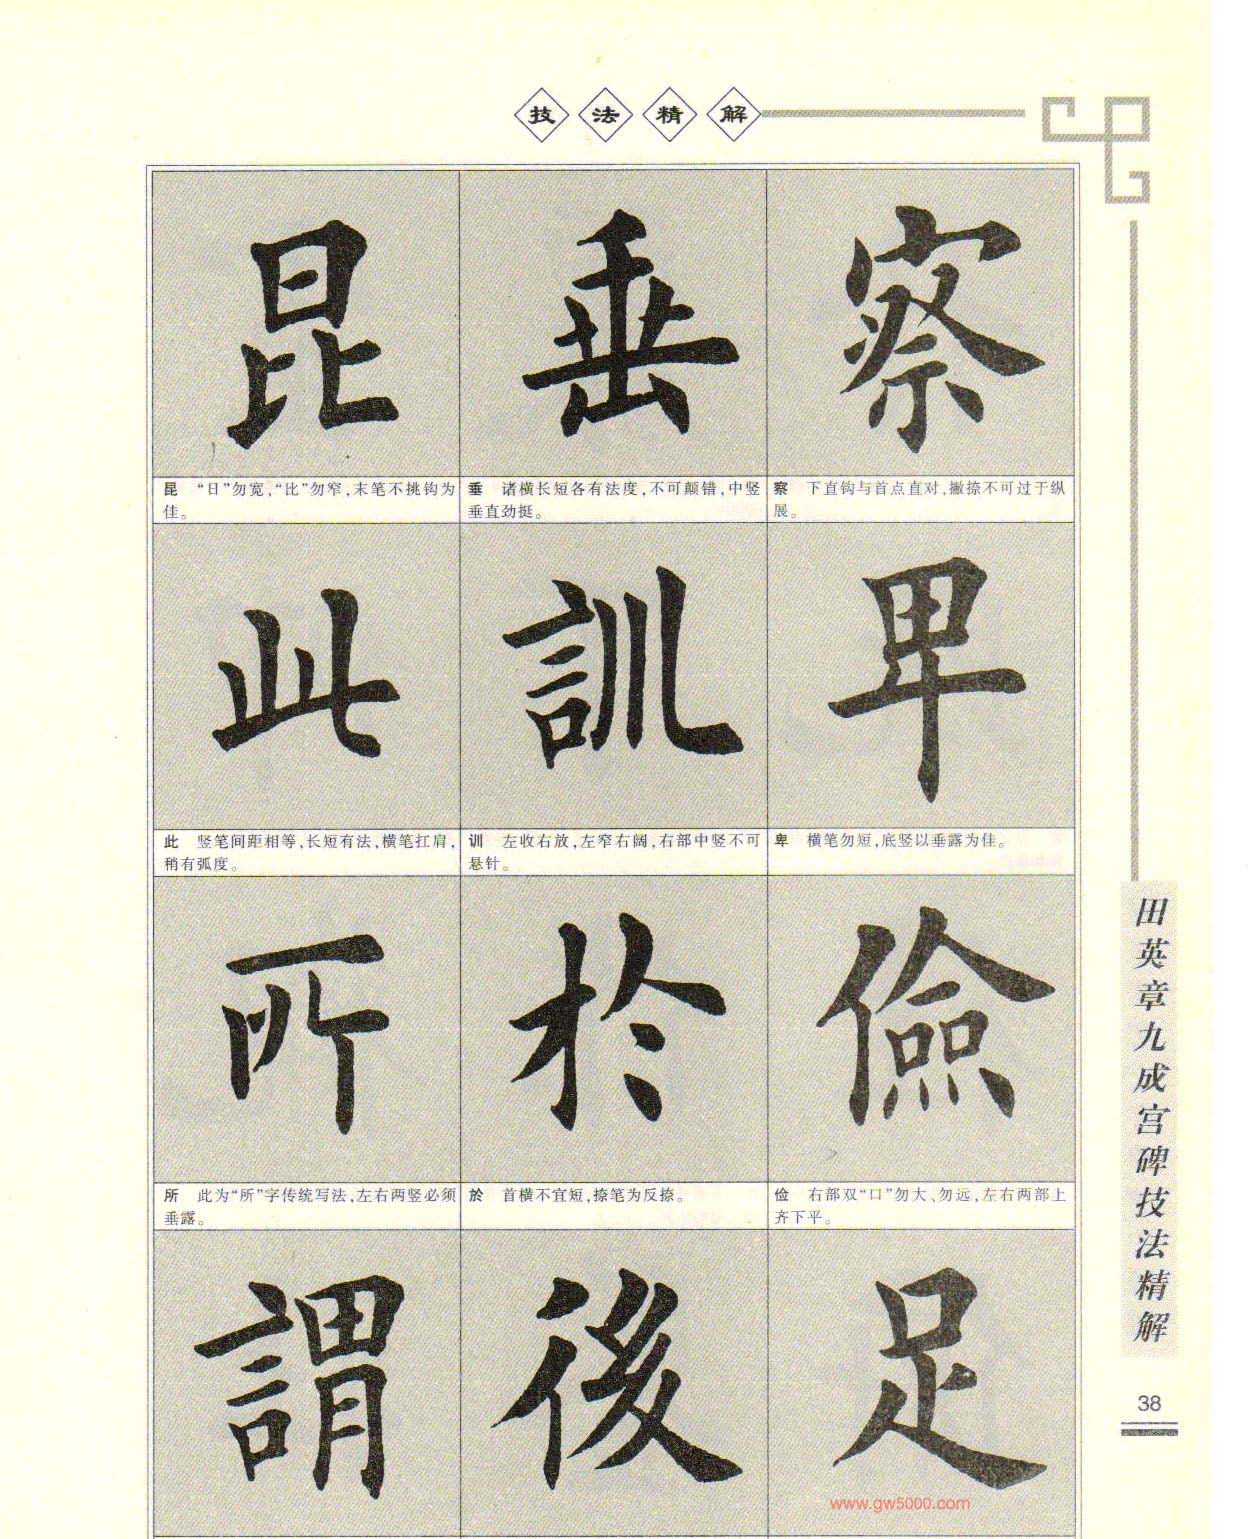 技法精解
昆 垂 察
昆 “日”勿宽，“比”勿窄，末笔不挑钩为
佳。
垂 诸横长短各有法度，不可颠错，中竖
垂直劲挺。
察 下直钩与首点直对，撇捺不可过于纵
展。
此 訓 卑
此 竖笔间距相等，长短有法，横笔扛肩，
稍有弧度。
训 左收右放，左窄右阔，右部中竖不可
悬针。
卑 横笔勿短，底竖以垂露为佳。
所 於 儉
所 此为“所”字传统写法，左右两竖必须
垂露。
於 首横不宜短，捺笔为反捺。
俭 右部双“口”勿大、勿远，左右两部上
齐下平。
謂 後 足
田英章九成宫碑技法精解
38
www.gw5000.com